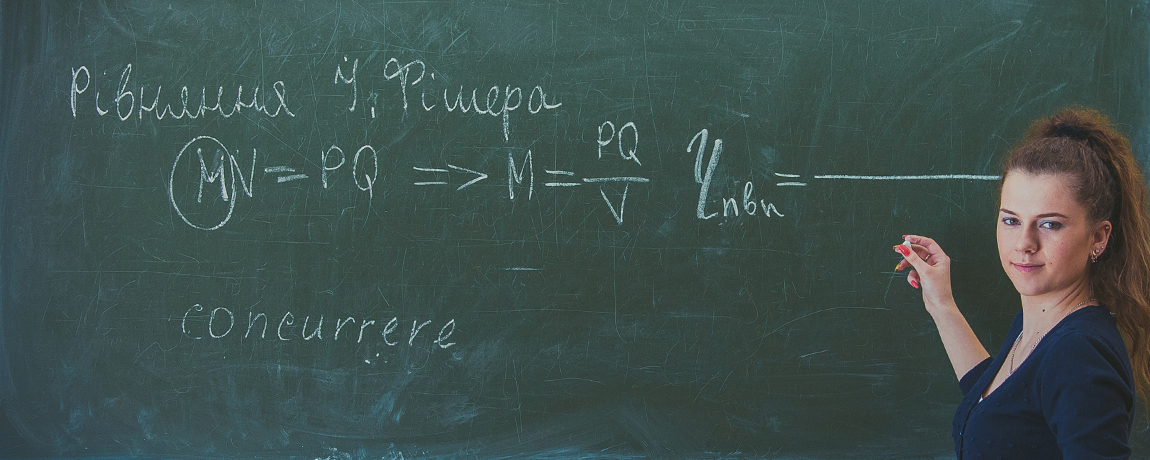 Рівняння І. Фішера
MV = PQ => M = PQ/V Цпвп =
concurrere